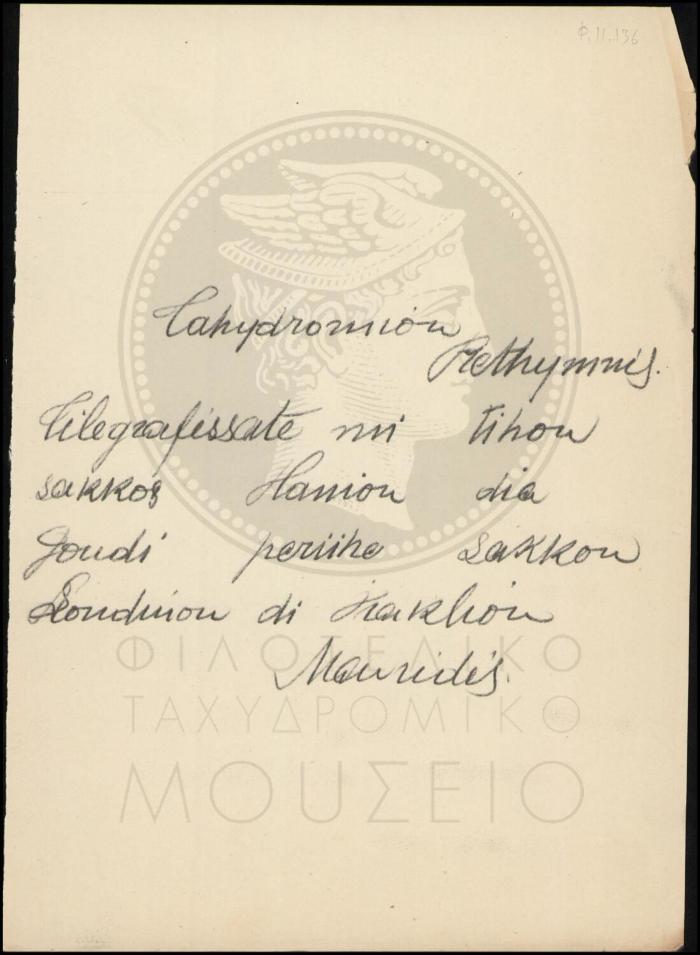 Φ.11.136
Tahydromion
Rethymnis.
Tilegrafissate mi tihon
sakkos Hanion dia
periihe sakkon
di
Mavridis.
ΦΙΛΟΤΕΛΙΚΟ
ΤΑΧΥΔΡΟΜΙΚΟ
ΜΟΥΣΕΙΟ